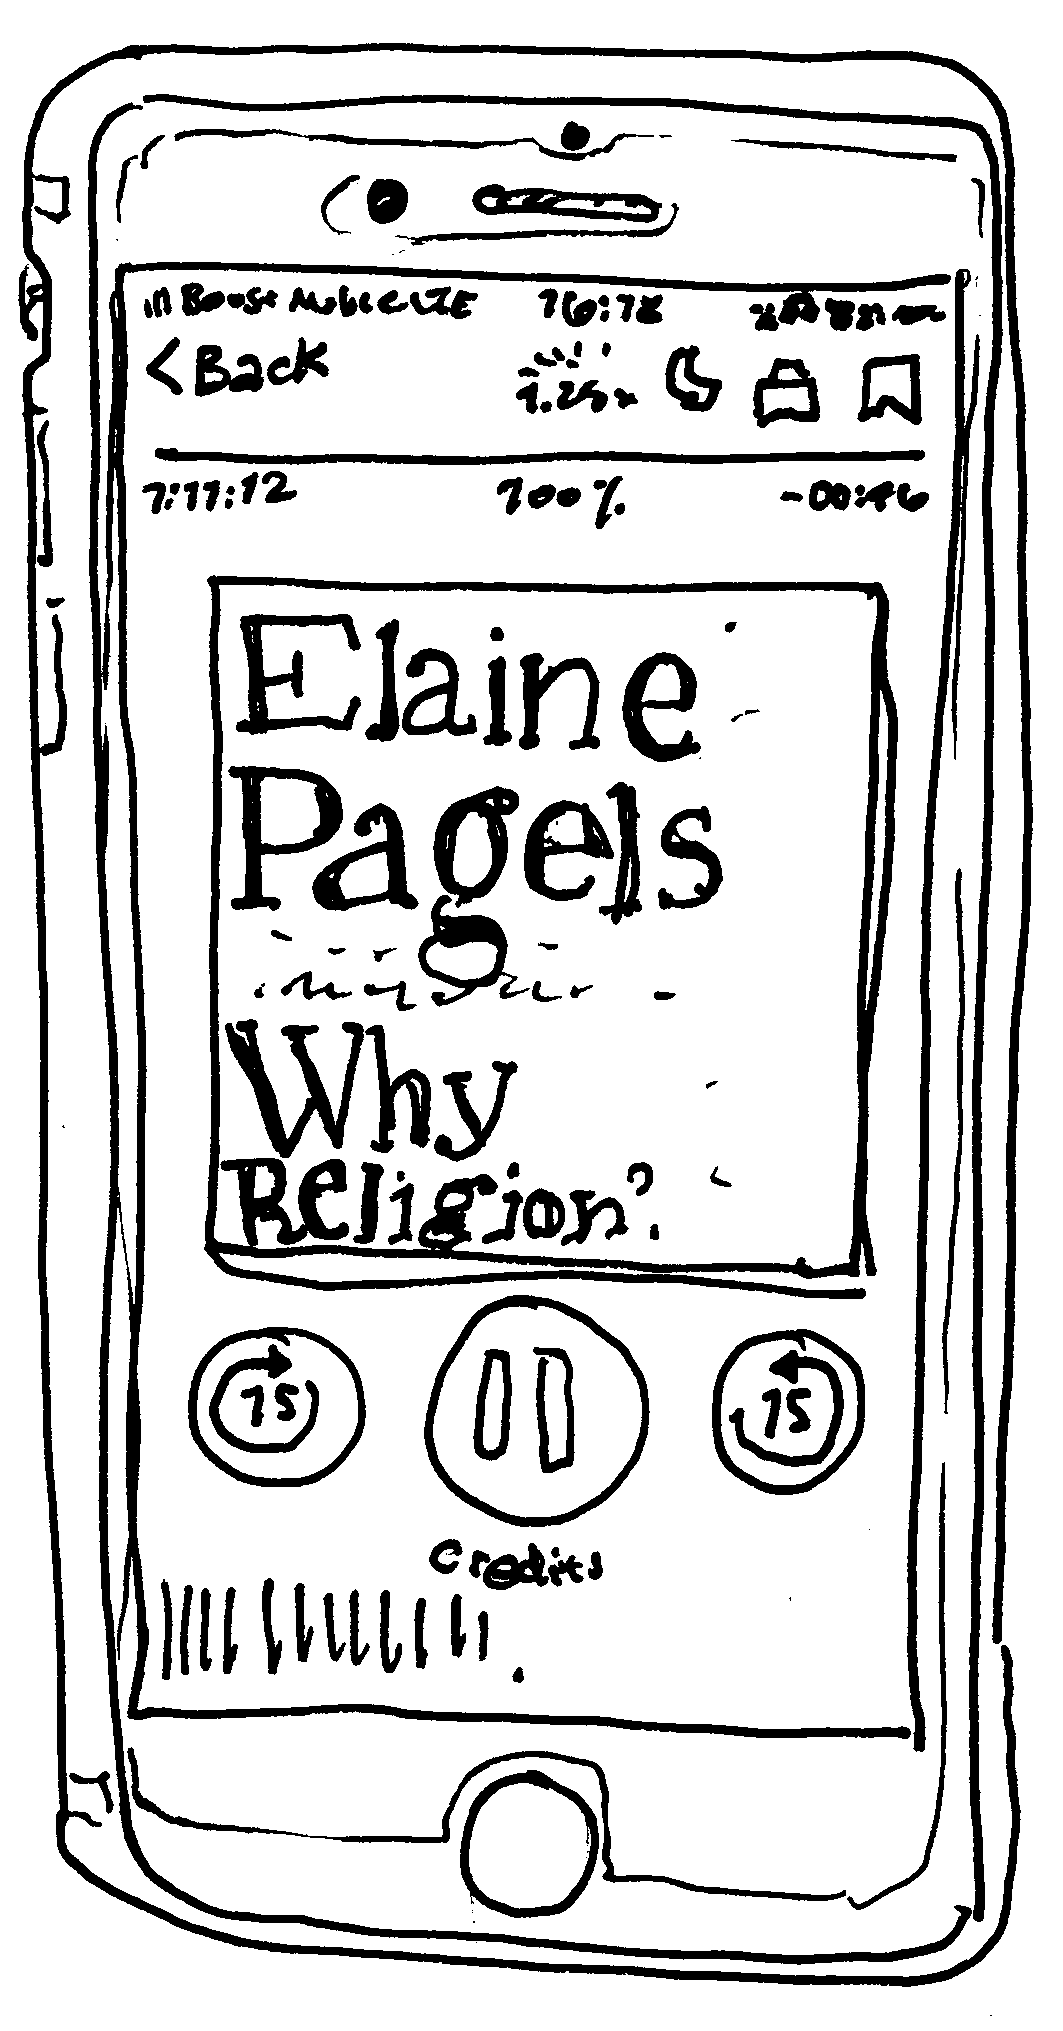 Boost Mobile LTE 16:18
< Back 1.25x
7:11:12 100% -00:46
Elaine
Pagels
Why
Religion?
15 15
Credits